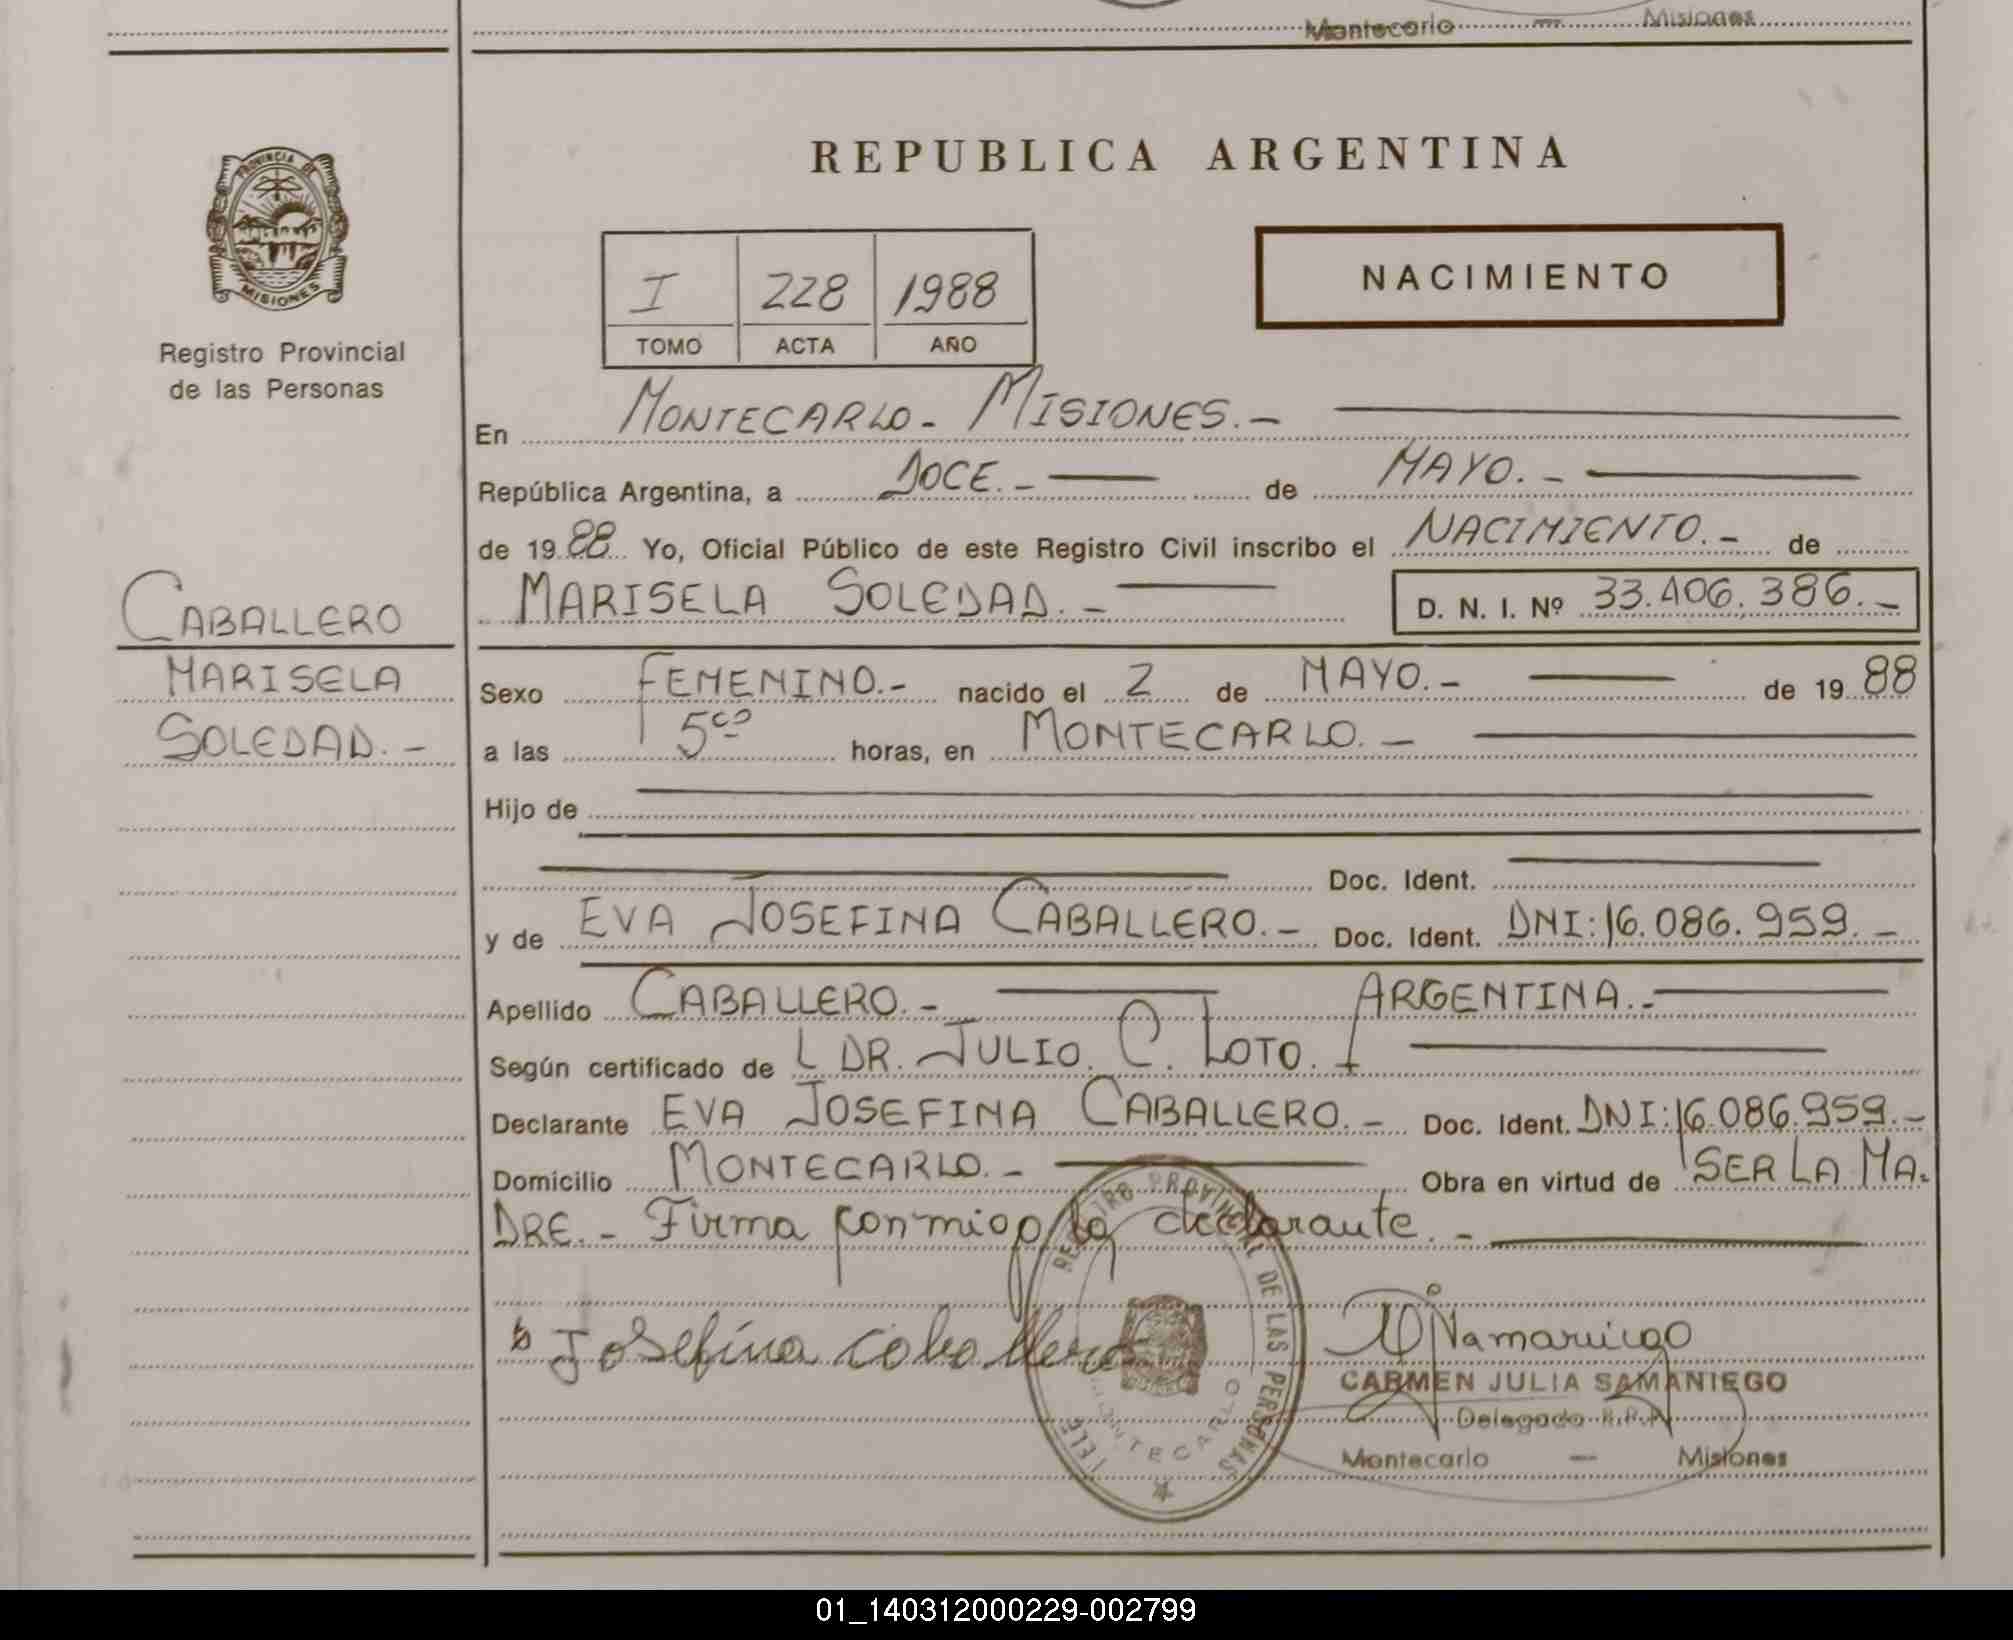 Montecarlo — Misiones
PROVINCIA DE
MISIONES
Registro Provincial
de las Personas
REPUBLICA ARGENTINA
I 228 1988
TOMO ACTA AÑO
NACIMIENTO
En MONTECARLO - MISIONES.-
República Argentina, a DOCE.- de MAYO.-
de 1988 Yo, Oficial Público de este Registro Civil inscribo el NACIMIENTO.- de
MARISELA SOLEDAD.- D. N. I. Nº 33.406.386.-
CABALLERO
MARISELA
SOLEDAD.-
Sexo FEMENINO.- nacido el 2 de MAYO.- de 1988
a las 5 horas, en MONTECARLO.-
Hijo de
Doc. Ident.
y de EVA JOSEFINA CABALLERO.- Doc. Ident. DNI:16.086.959.-
Apellido CABALLERO.- ARGENTINA.-
Según certificado de L DR. JULIO C. LOTO.
Declarante EVA JOSEFINA CABALLERO.- Doc. Ident. DNI:16.086.959.-
Domicilio MONTECARLO.- Obra en virtud de SER LA MA-
DRE.- Firma conmigo la declarante.-
Josefina caballero
REGISTRO PROVINCIAL DE LAS PERSONAS
MONTECARLO
CARMEN JULIA SAMANIEGO
Delegada R.P.P.
Montecarlo — Misiones
01_140312000229-002799